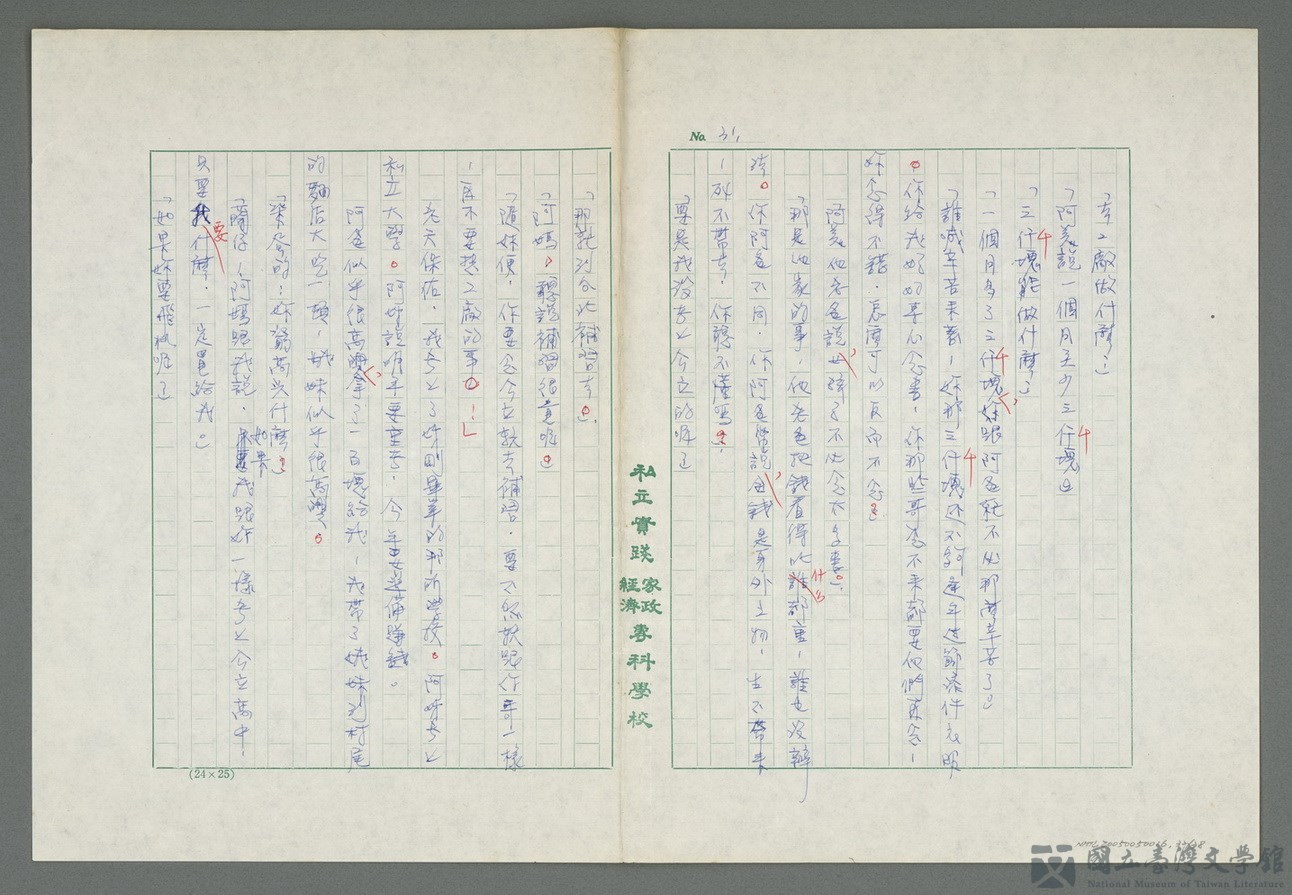 No. 31,
「去工廠做什麼！」
「阿美說一個月至少三仟塊。」
千
「三仟塊能做什麼？」
千
「一個月多了三仟塊，妹跟阿爸就不必那麼辛苦了。」
千
「誰嘁辛苦來著！妳那三仟塊还不夠逢年過節添件衣服
千
。你給我好好專心念書！你那些哥念不來都要他們再念！
妳念得不錯，怎麼可以反而不念？」
「阿美他爸爸說女孩子不必念太多書。」
「那是他家的事！他爸爸把錢看得比誰都重！誰也沒辦
什么
法。你阿爸不同，你阿爸常說，金錢是身外之物！生不帶來
！死不帶去！你聽不懂嗎？」
「要是我沒考上公立的呢？」
私立實踐家政經濟專科學校
「那就到台北補習去。」
「阿媽，聽說補習很貴呢。」
「隨妹便，你要念公立就去補習，要不然就跟你哥一樣
！再不要提工廠的事！」
老天保佑，我考上了才剛畢業的那所學校。阿好考上
私立大學。阿好說明年要重考，今年要準備賺錢。
阿爸似乎很高興，拿了一百塊給我！我帶了妹妹到村尾
的麵店大吃一頓，妹妹似乎很高興。
「樂得的！妳窮高兴什麼？」
「阿媽跟我說，如果我跟妳一樣考上公立高中，
只要我要什麼，一定買給我。」
「如果妳要飛机呢？」
(24×25)
國立臺灣文學館
National Museum of Taiwan Literature